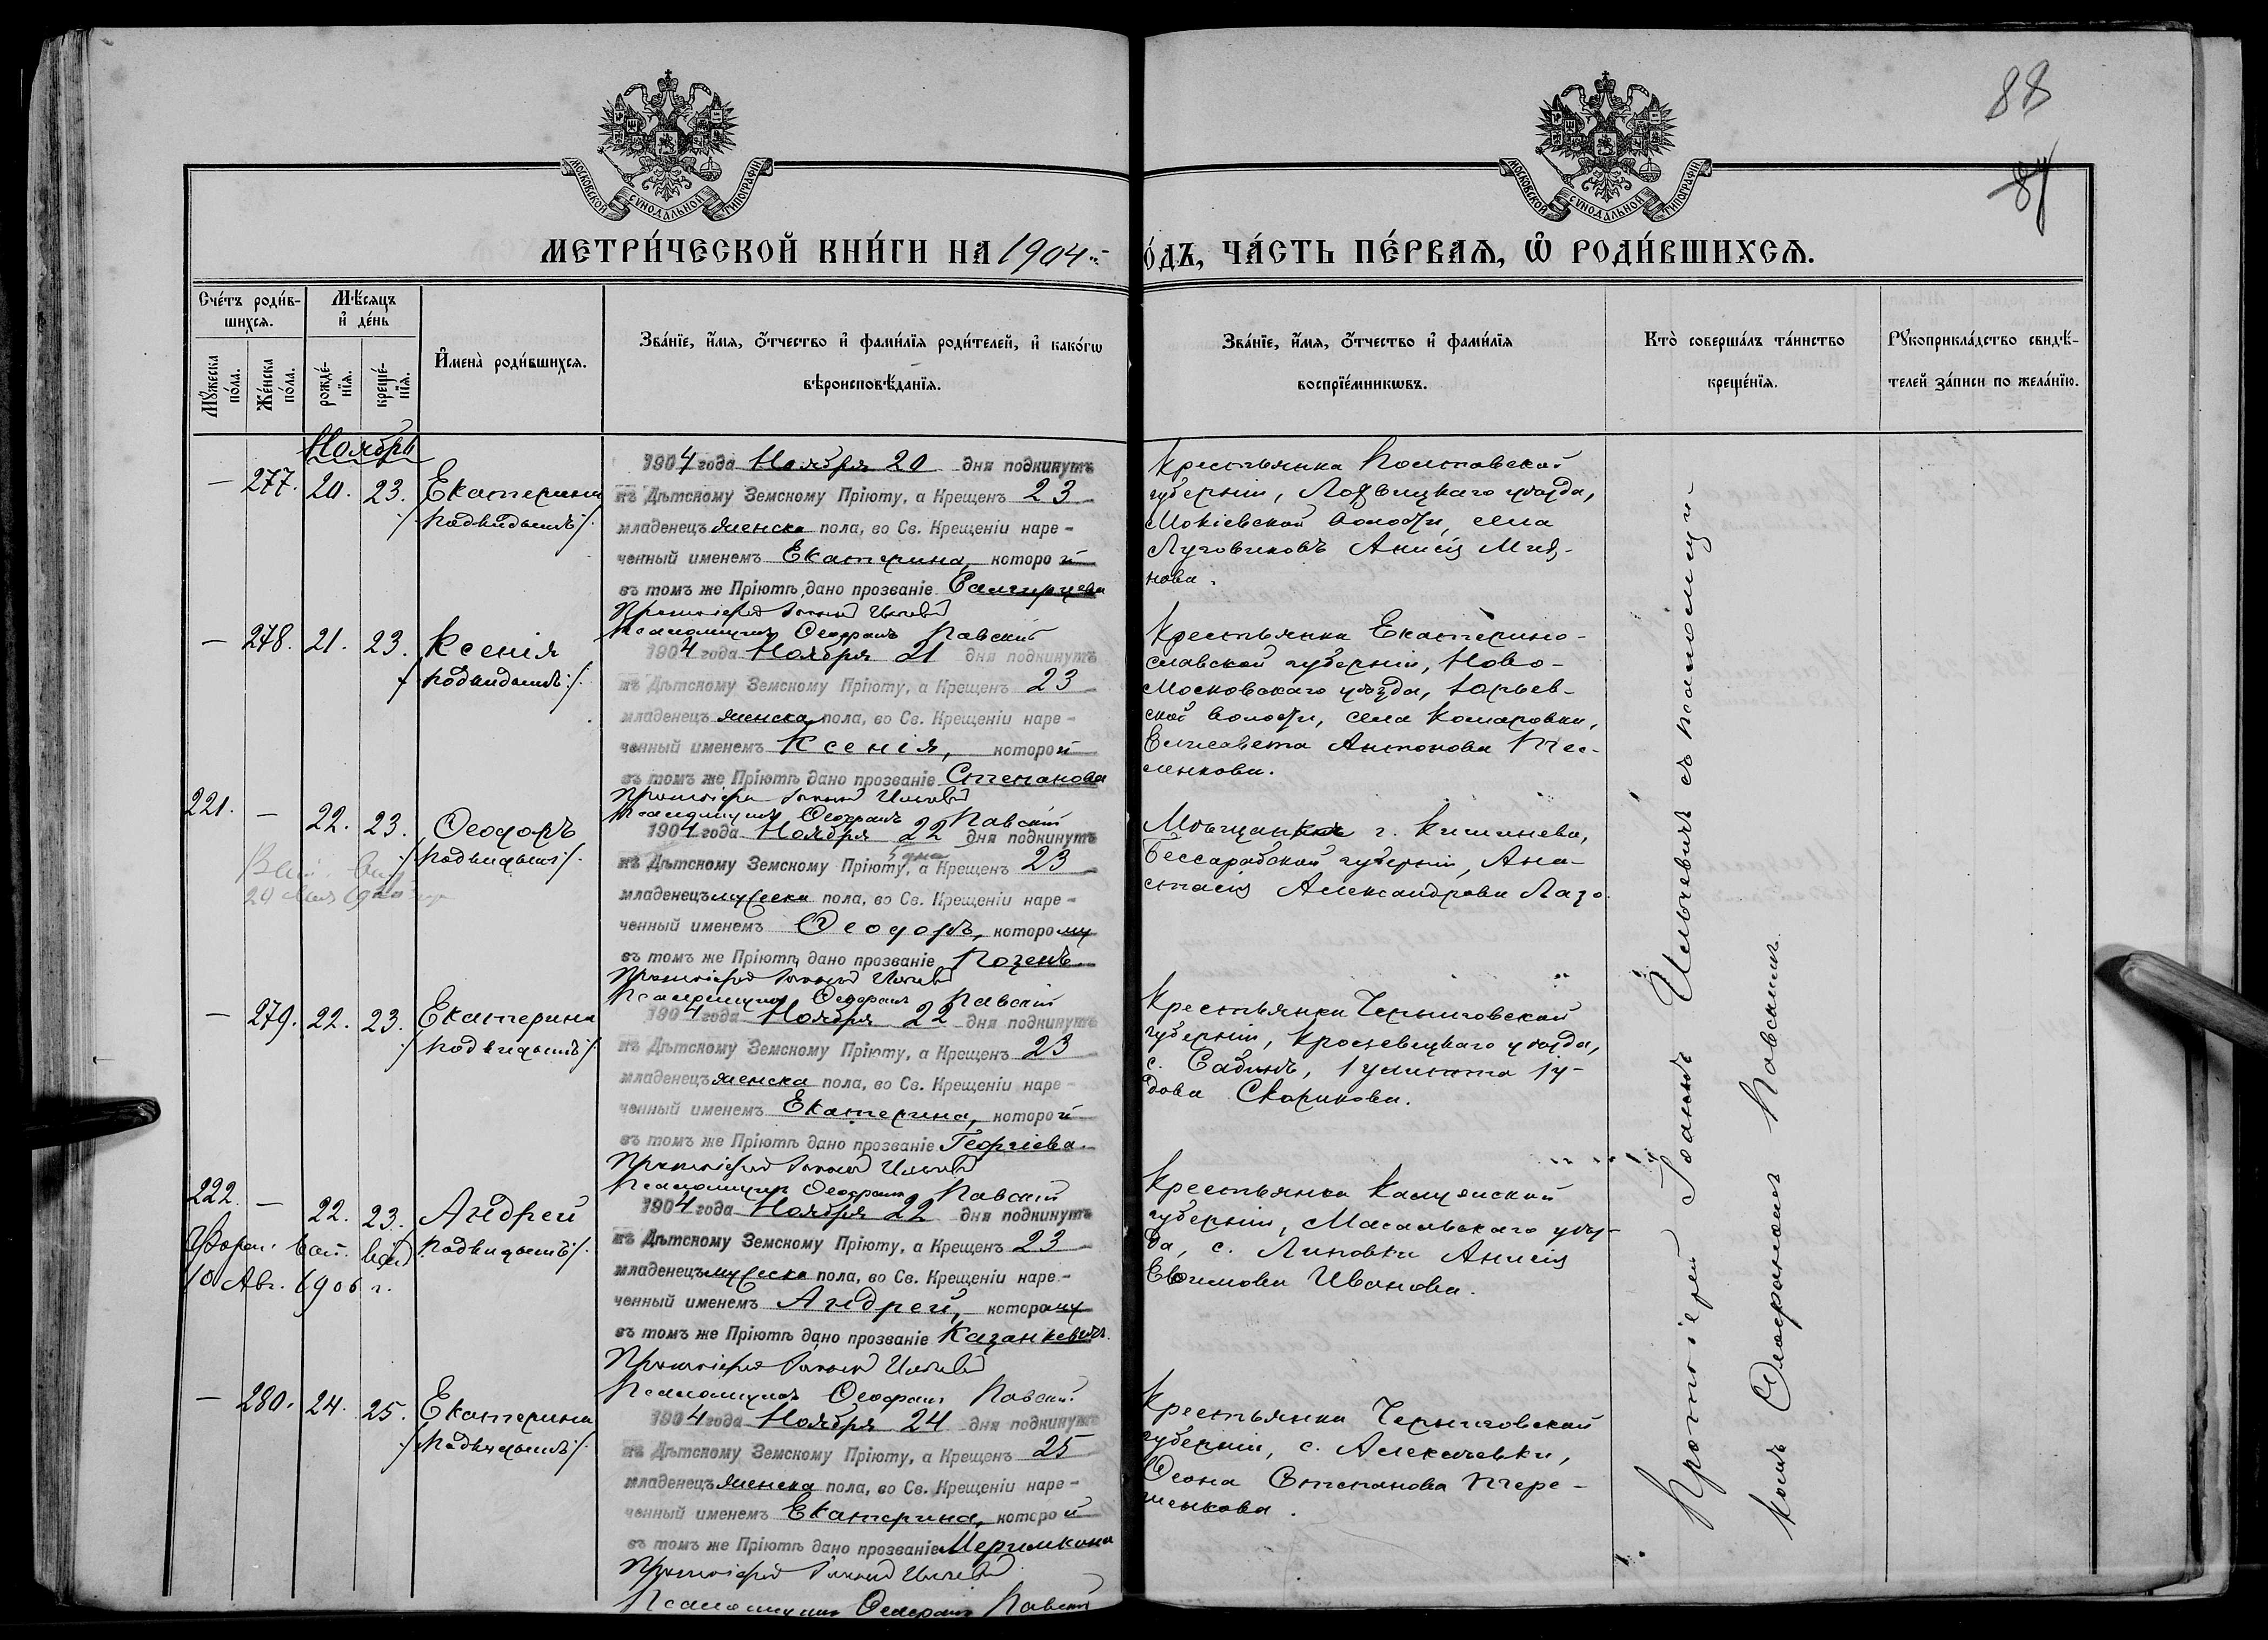 88
87
МОСКОВСКОЙ СѴНОДАЛЬНОЙ ТИПОГРАФІИ
МОСКОВСКОЙ СѴНОДАЛЬНОЙ ТИПОГРАФІИ
МЕТРИ́ЧЕСКОЙ КНИ́ГИ НА 1904 О́ДЪ, ЧА́СТЬ ПЕ́РВАѦ, Ѡ҆ РОДИ́ВШИХСѦ.
Сче́тъ роди́в-
шихсѧ.
Мꙋ́жеска
по́ла.
Же́нска
по́ла.
Мѣ́сѧцъ
и҆ де́нь
рожде́-
нїѧ.
креще́-
нїѧ.
И҆мена̀ роди́вшихсѧ.
Зва́нїе, и҆́мѧ, ѻ҆́тчество и҆ фами́лїѧ роди́телей, и҆ како́гѡ
вѣроисповѣ́данїѧ.
Зва́нїе, и҆́мѧ, ѻ҆́тчество и҆ фами́лїѧ
воспрїе́мникѡвъ.
Кто̀ соверша́лъ та́инство
креще́нїѧ.
Рꙋкоприкла́дство свидѣ́-
телей за́писи по жела́нїю.
Ноябрь
— 277. 20. 23. Екатерина
/подкидышъ/.
1904 года Ноября 20 дня подкинутъ
къ Дѣтскому Земскому Пріюту, а Крещенъ 23
младенецъ женска пола, во Св. Крещеніи наре-
ченный именемъ Екатерина, которой
въ томъ же Пріютѣ дано прозваніе
Протоіерей Іоаннъ Ильчевичъ
Псаломщикъ Ѳеофанъ Павскій
Крестьянка Полтавской
губерніи, Лохвицкаго уѣзда,
Мокіевской волости, села
Луговиковъ Анисія
нова.
— 278. 21. 23. Ксенія
/подкидышъ/.
1904 года Ноября 21 дня подкинутъ
къ Дѣтскому Земскому Пріюту, а Крещенъ 23
младенецъ женска пола, во Св. Крещеніи наре-
ченный именемъ Ксенія, которой
въ томъ же Пріютѣ дано прозваніе Степанова
Протоіерей Іоаннъ Ильчевичъ
Псаломщикъ Ѳеофанъ Павскій
Крестьянка Екатерино-
славской губерніи, Ново-
московскаго уѣзда, Юрьев-
ской волости, села Комаровки,
Елисавета Антонова Тес-
ленкова.
221. — 22. 23. Ѳеодоръ
/подкидышъ/.
1904 года Ноября 22 дня подкинутъ
къ Дѣтскому Земскому Пріюту, а Крещенъ 23
младенецъ мужеска пола, во Св. Крещеніи наре-
ченный именемъ Ѳеодоръ, которому
въ томъ же Пріютѣ дано прозваніе Позенъ
Протоіерей Іоаннъ Ильчевичъ
Псаломщикъ Ѳеофанъ Павскій
Мѣщанка г. Кишинева,
Бессарабской губерніи, Ана-
стасія Александрова Лазо.
— 279. 22. 23. Екатерина
/подкидышъ/.
1904 года Ноября 22 дня подкинутъ
къ Дѣтскому Земскому Пріюту, а Крещенъ 23
младенецъ женска пола, во Св. Крещеніи наре-
ченный именемъ Екатерина, которой
въ томъ же Пріютѣ дано прозваніе Георгіева.
Протоіерей Іоаннъ Ильчевичъ
Псаломщикъ Ѳеофанъ Павскій
Крестьянка Черниговской
губерніи, Кролевецкаго уѣзда,
с. Іулитта Іу-
дова Скорикова.
222. — 22. 23. Андрей
/подкидышъ/.
10 Авг. 1906 г.
1904 года Ноября 22 дня подкинутъ
къ Дѣтскому Земскому Пріюту, а Крещенъ 23
младенецъ мужеска пола, во Св. Крещеніи наре-
ченный именемъ Андрей, которому
въ томъ же Пріютѣ дано прозваніе Казанкевичъ.
Протоіерей Іоаннъ Ильчевичъ
Псаломщикъ Ѳеофанъ Павскій
Крестьянка Калужской
губерніи, Масальскаго уѣз-
да, с. Липовки Анисія
Евѳимова Иванова.
— 280. 24. 25. Екатерина
/подкидышъ/.
1904 года Ноября 24 дня подкинутъ
къ Дѣтскому Земскому Пріюту, а Крещенъ 25
младенецъ женска пола, во Св. Крещеніи наре-
ченный именемъ Екатерина, которой
въ томъ же Пріютѣ дано прозваніе
Протоіерей Іоаннъ Ильчевичъ
Псаломщикъ Ѳеофанъ Павскій
Крестьянка Черниговской
губерніи, с. Алексѣевки,
Степанова Тере-
щенкова.
Протоіерей Іоаннъ Ильчевичъ съ псаломщи-
комъ Ѳеофаномъ Павскимъ.